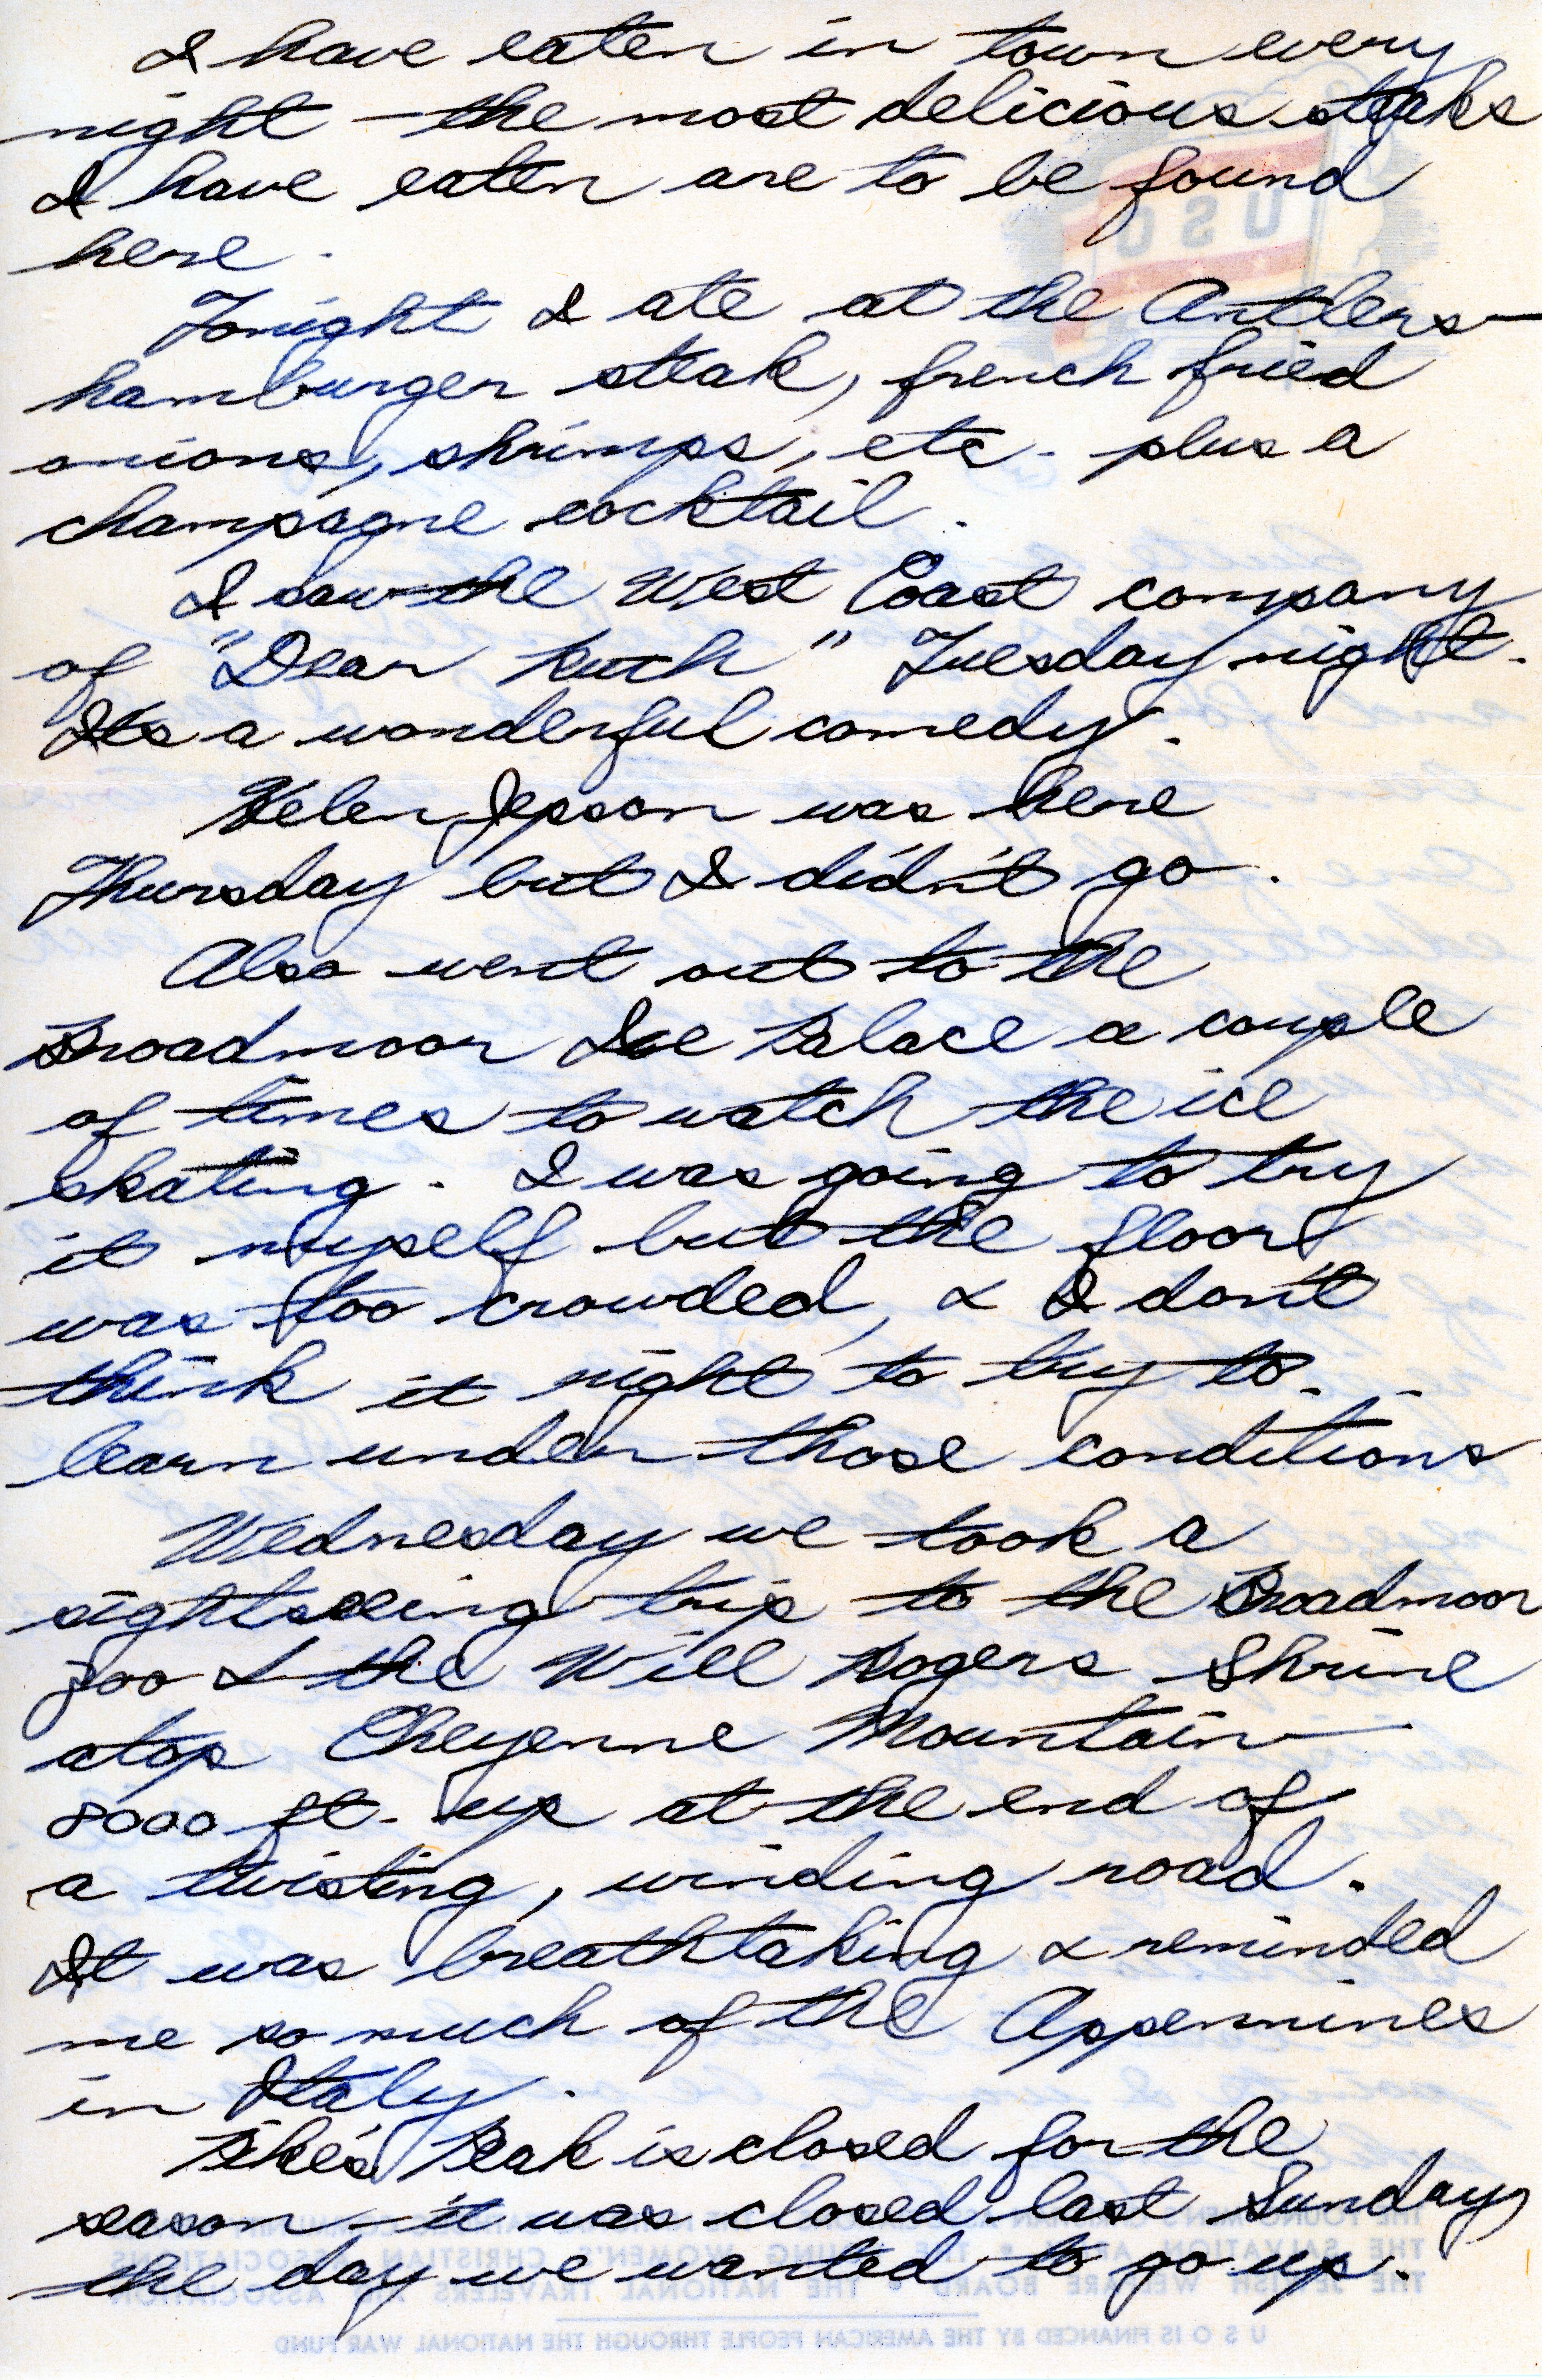 I have eaten in town every
night - the most delicious steaks
I have eaten are to be found
here.
Tonight I ate at the Antlers -
hamburger steak, french fried
onions, shrimps, etc. plus a
champagne cocktail.
I saw the West Coast company
of "Dear Ruth" Tuesday night.
Its a wonderful comedy.
Helen Jepson was here
Thursday but I didn't go.
Also went out to the
Broadmoor Ice Palace a couple
of times to watch the ice
skating. I was going to try
it myself but the floor
was too crowded, & I don't
think it right to try to
learn under those conditions
Wednesday we took a
sightseeing trip to the Broadmoor
zoo & the Will Rogers Shrine
atop Cheyenne Mountain
8000 ft. up at the end of
a twisting, winding road.
It was breathtaking & reminded
me so much of the Appennines
in Italy.
Pike's Peak is closed for the
season - it was closed last Sunday,
the day we wanted to go up.
USO
U S O IS FINANCED BY THE AMERICAN PEOPLE THROUGH THE NATIONAL WAR FUND